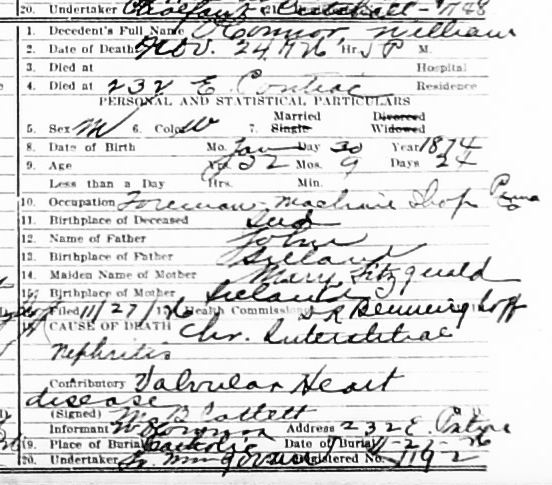 20. Undertaker 1748
1. Decedent's Full Name O'Connor, William
2. Date of Death Nov. 24, 26 Hr. 5 P M.
3. Died at Hospital
4. Died at 232 E. Pontiac Residence
PERSONAL AND STATISTICAL PARTICULARS
Married Divorced
5. Sex M 6. Color W 7. Single Widowed
8. Date of Birth Mo. Jan Day 30 Year 1874
9. Age Yrs. 52 Mos. 9 Days 24
Less than a Day Hrs. Min.
10. Occupation Foreman Machine Shop Penna
11. Birthplace of Deceased Ind
12. Name of Father John
13. Birthplace of Father Ireland
14. Maiden Name of Mother Mary Fitzgerald
15. Birthplace of Mother Ireland
Filed 11/27/1926 Health Commissioner
CAUSE OF DEATH Chr. Interstitial
Nephritis
Contributory Valvular Heart
disease
(Signed) M B Catlett
Informant Address 232 E. Pontiac
19. Place of Burial Catholic Date of Burial
20. Undertaker Registered No. 1192